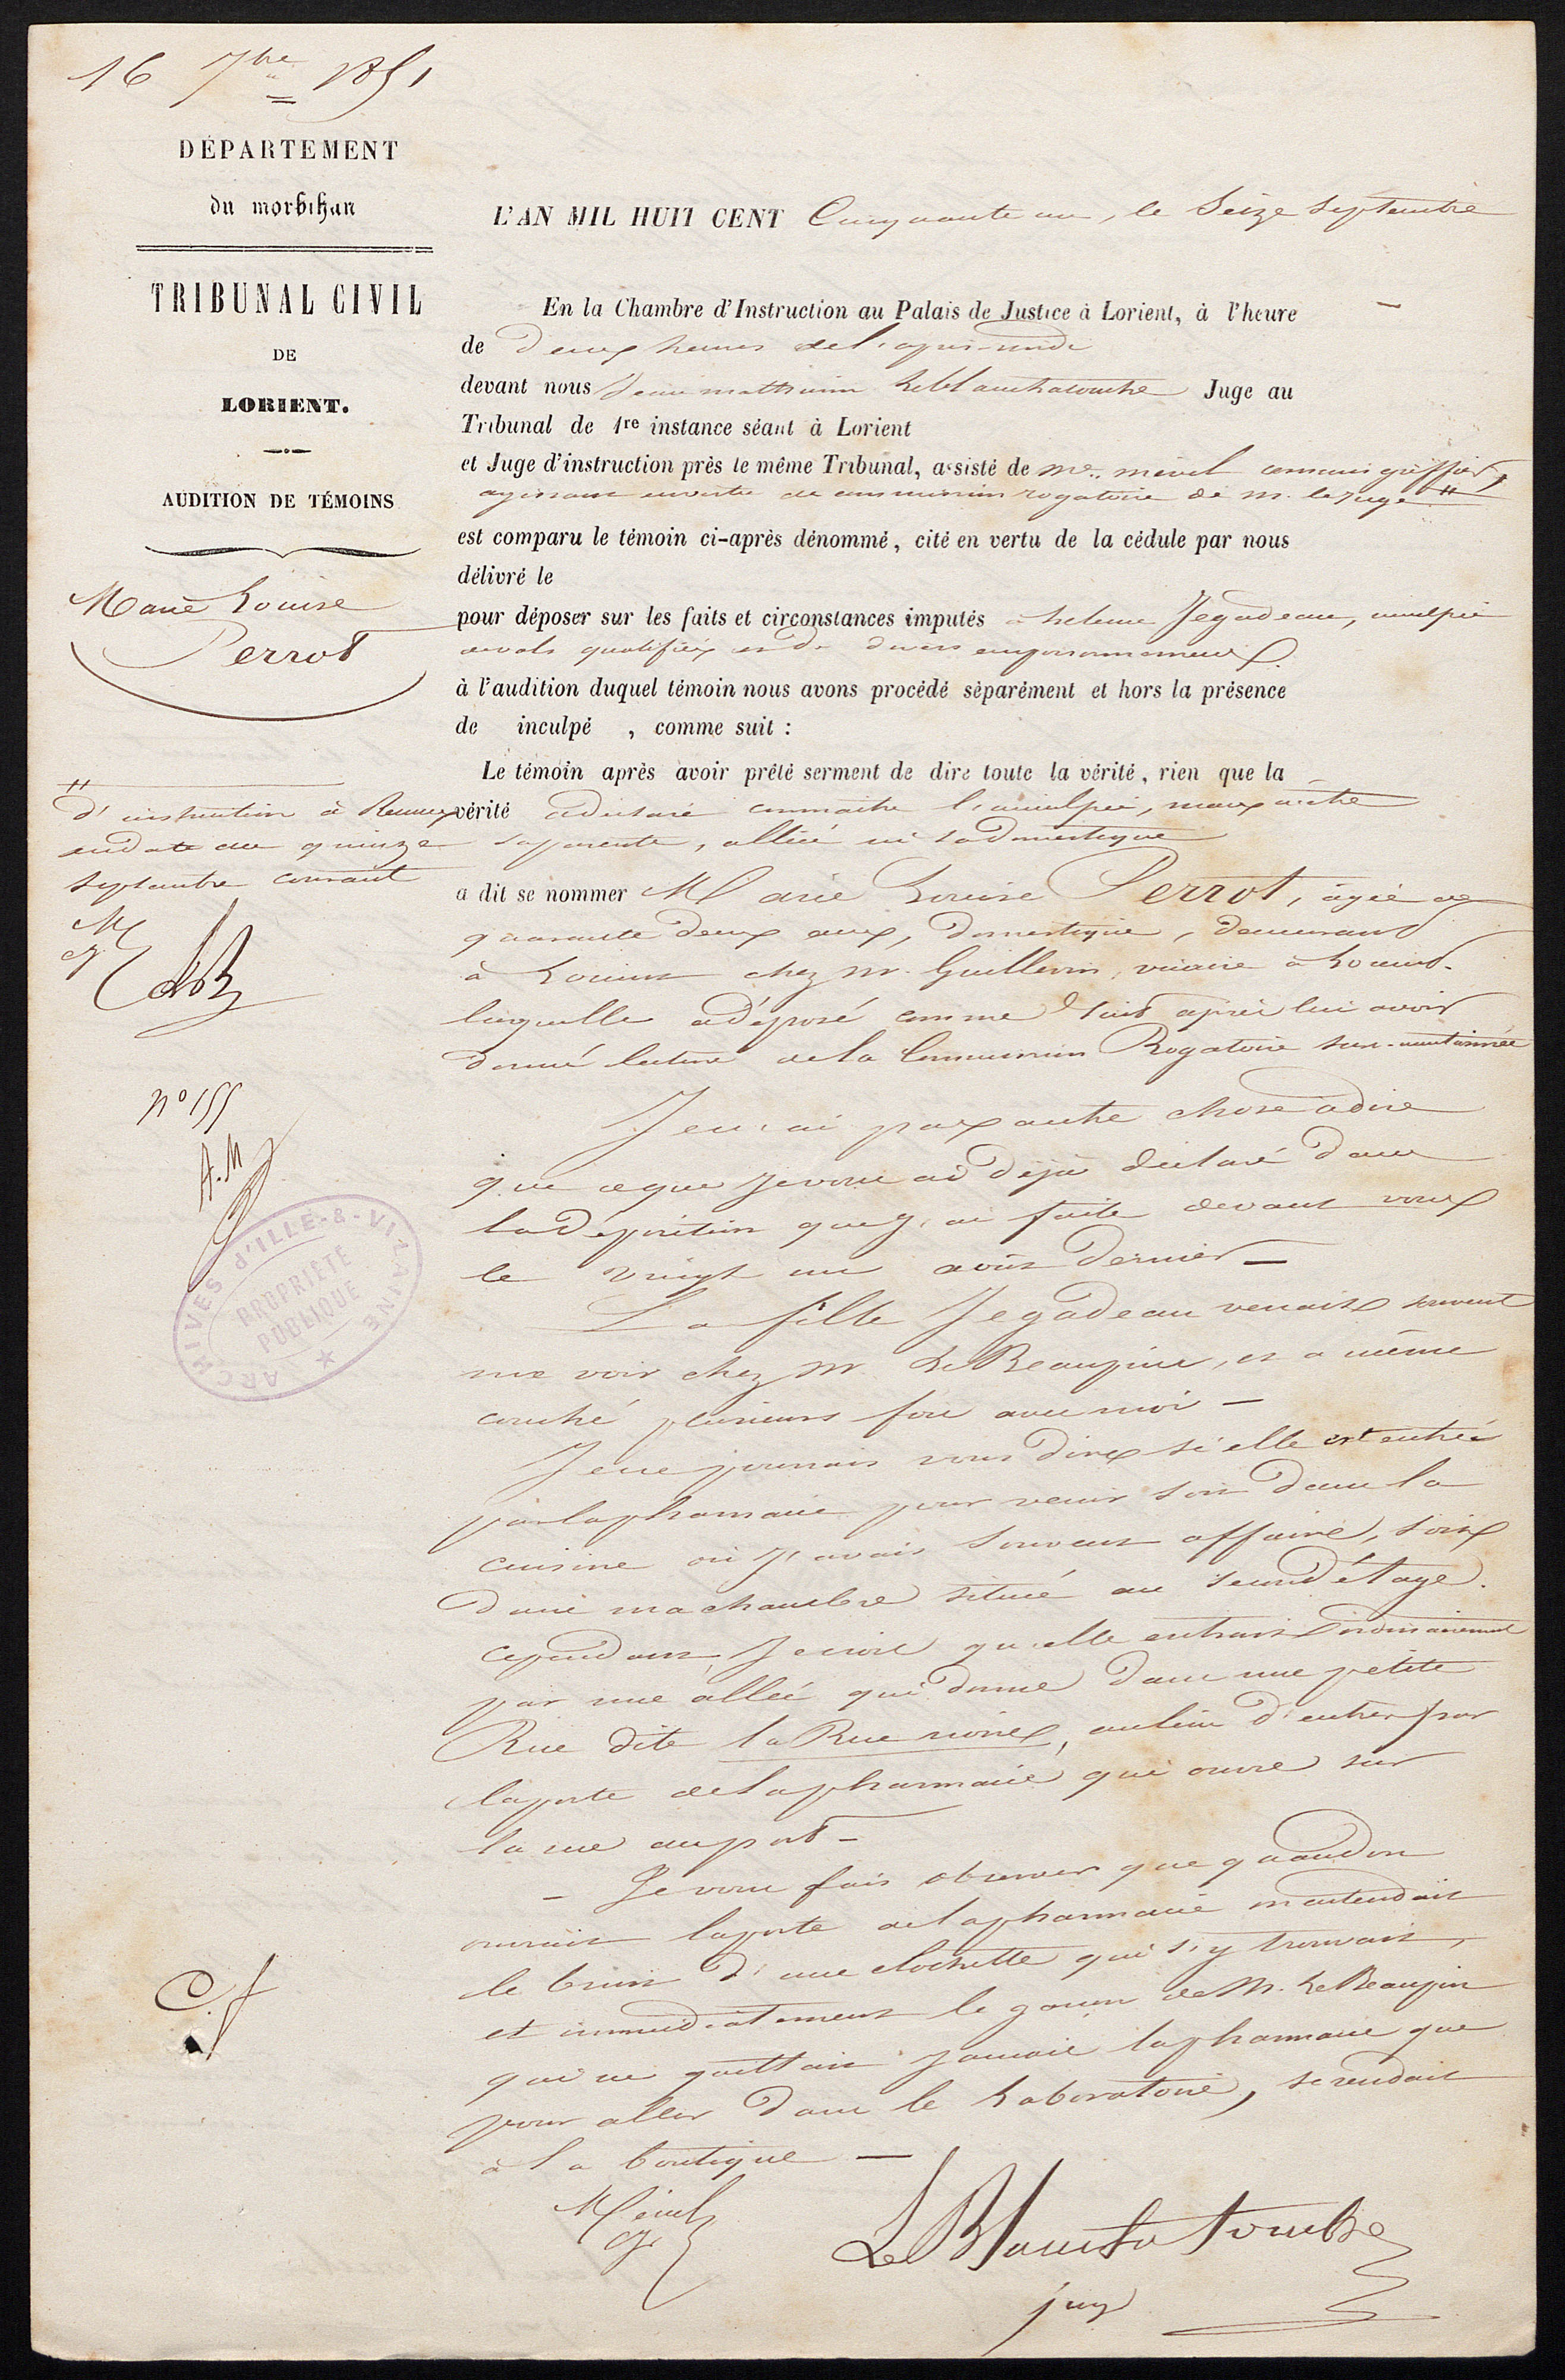 16 7bre 1851
DÉPARTEMENT
du morbihan
TRIBUNAL CIVIL
DE
LORIENT.
AUDITION DE TÉMOINS
Marie Louise
Perrot
#
d'instruction à Rennes
en date du quinze
septembre courant
n° 155
A.M
ARCHIVES D'ILLE-&-VILAINE
PROPRIÉTÉ
PUBLIQUE
C.f
L'AN MIL HUIT CENT Cinquante un, le Seize septembre
En la Chambre d'Instruction au Palais de Justice à Lorient, à l'heure
de deux heures de l'après-midi
devant nous Jean mathurin LeBlanchatouche Juge au
Tribunal de 1re instance séant à Lorient
et Juge d'instruction près le même Tribunal, assisté de me. minel commis greffier,
agissant en vertu de commission rogatoire de m. le juge #
est comparu le témoin ci-après dénommé, cité en vertu de la cédule par nous
délivré le
pour déposer sur les faits et circonstances imputés à helene Jegadeau, inculpée
de vols qualifiés et de divers empoisonnements.
à l'audition duquel témoin nous avons procédé séparément et hors la présence
de inculpé , comme suit :
Le témoin après avoir prêté serment de dire toute la vérité, rien que la
vérité a déclaré connaitre l'inculpée, mais n'etre
sa parente, alliée ni sa domestique
a dit se nommer Marie Louise Perrot, agée de
quarante deux ans, Domestique, demeurant
à Lorient chez mr. Guillevin, vicaire à Lorient.
laquelle a déposé comme suit après lui avoir
donné lecture de la Commission Rogatoire sus-mentionnée
Je n'ai pas autre chose à dire
que ce que je vous ai déja déclaré dans
la déposition que j'ai faite devant vous
le vingt un août dernier —
La fille Jegadeau venait souvent
me voir chez mr LeBeaupin, et a même
couché plusieurs fois avec moi —
Je ne pourrais vous dire si elle est entrée
par la pharmacie pour venir soit dans la
cuisine où j'avais souvent affaire, soit
dans ma chambre située au second étage.
cependant, Je crois qu'elle entrait ordinairement
par une allée qui donne dans une petite
Rue dite la Rue noire, au lieu d'entrer par
la porte de la pharmacie qui ouvre sur
la rue du port —
— Je vous fais observer que quand on
ouvrait la porte de la pharmacie on entendait
le bruit d'une clochette qui s'y trouvait,
et immediatement le garçon de M. LeBeaupin
qui ne quittait jamais la pharmacie que
pour aller dans le Laboratoire, se rendait
à la boutique —
Minel
LeBlanchatouche
juge